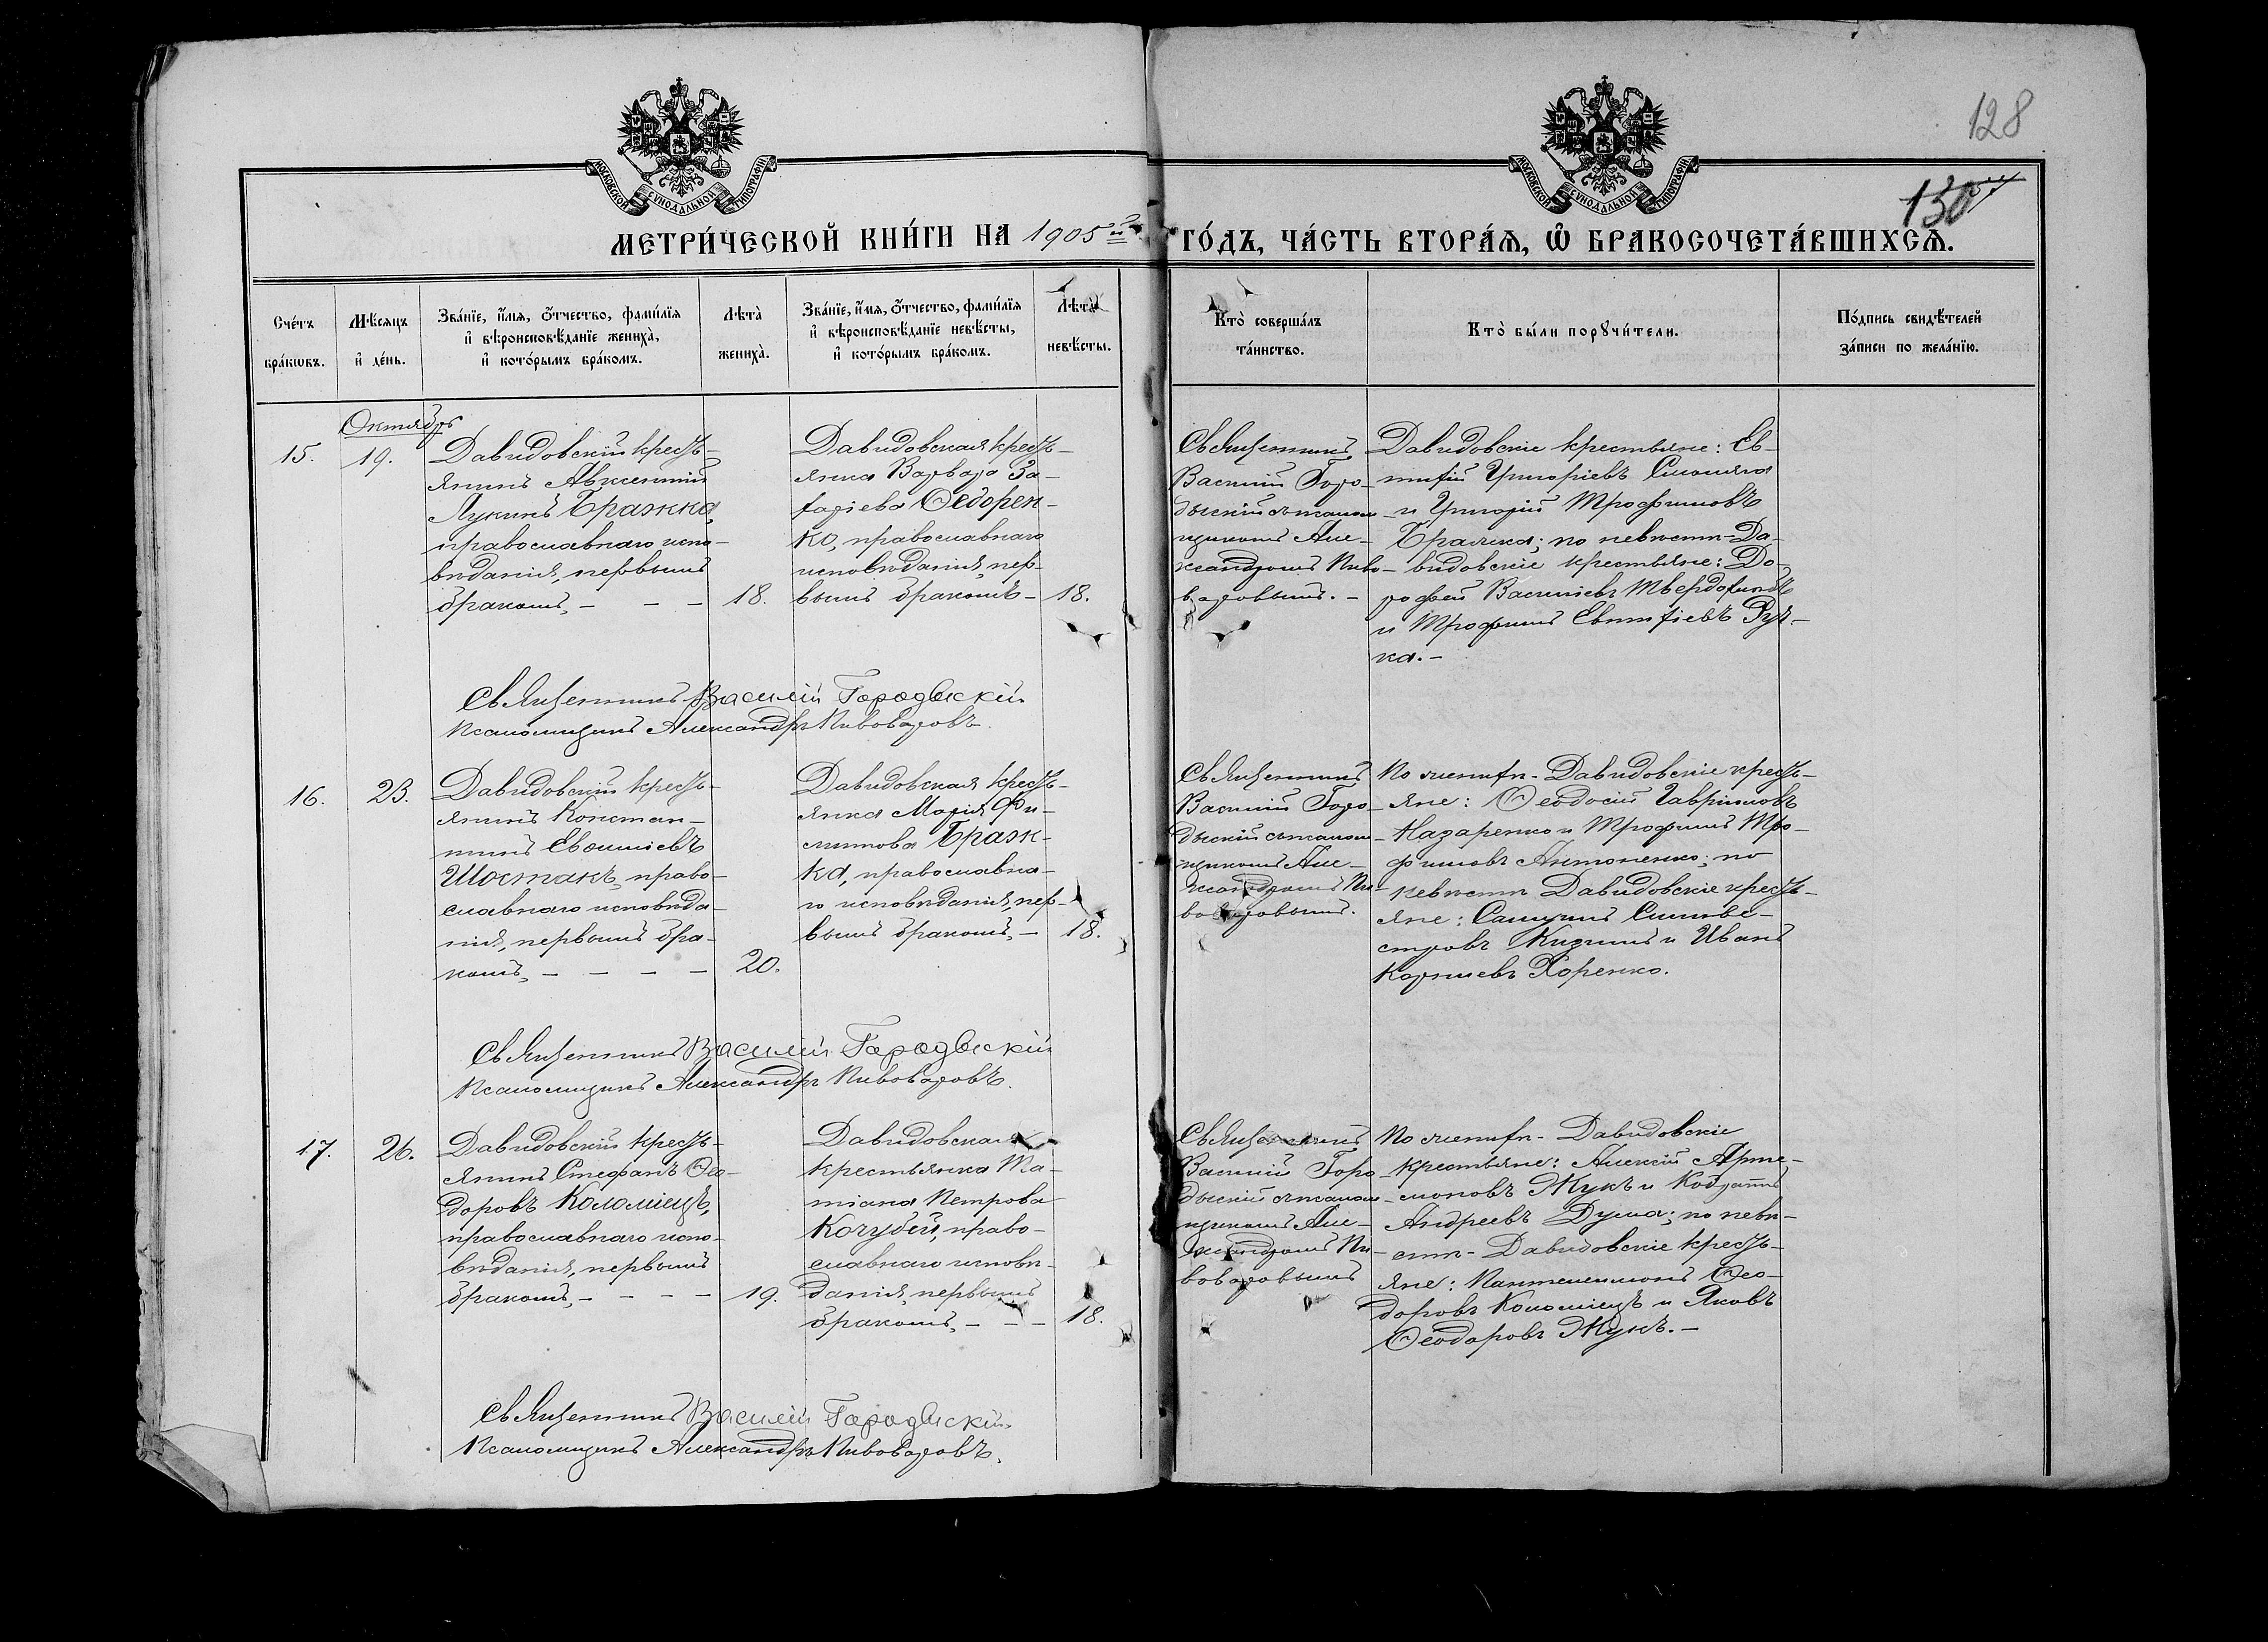 128
130
МОСКОВСКОЙ СѴНОДАЛЬНОЙ ТИПОГРАФІИ
МОСКОВСКОЙ СѴНОДАЛЬНОЙ ТИПОГРАФІИ
МЕТРИ́ЧЕСКОЙ КНИ́ГИ НА 1905й ГО́ДЪ, ЧА́СТЬ ВТОРА́Ѧ, Ѽ БРАКОСОЧЕТА́ВШИХСѦ.
Сче́тъ
бра́кѡвъ.
Мѣ́сяцъ
и҆ де́нь.
Зва́нїе, и҆́мѧ, ѻ҆́тчество, фами́лїѧ
и҆ вѣроисповѣ́данїе женихà,
и҆ кото́рымъ бра́комъ.
Лѣтà
женихà.
Зва́нїе, и҆́мѧ, ѻ҆́тчество, фами́лїѧ
и҆ вѣроисповѣ́данїе невѣ́сты,
и҆ кото́рымъ бра́комъ.
Лѣтà
невѣ́сты.
Ктò соверша́лъ
та́инство.
Ктò бы́ли порꙋчи́тели.
По́дпись свидѣ́телей
за́писи по жела́нїю.
Октябрь
15.
19.
Давидовскій кресть-
янинъ Авксентій
Лукинъ Бражка,
православнаго испо-
вѣданія, первымъ
бракомъ, - - -
18.
Давидовская кресть-
янка Варвара За-
харіева Ѳедорен-
ко, православнаго
исповѣданія, пер-
вымъ бракомъ -
18.
Священникъ
Василій Горо-
дыскій съ псалом-
щикомъ Але-
ксандромъ Пиво-
варовымъ. -
Давидовскіе крестьяне: Ев-
тихій Григоріевъ
и Григорій Трофимовъ
Бражка; по невѣстѣ - Да-
видовскіе крестьяне: До-
рофей Васильевъ Твердохлѣбъ
и Трофимъ Евтихіевъ Руч-
ка. -
Священникъ Василій Городыскій
Псаломщикъ Александръ Пивоваровъ.
16.
23.
Давидовскій кресть-
янинъ Констан-
тинъ Евѳиміевъ
Шостакъ, право-
славнаго исповѣда-
нія, первымъ бра-
комъ, - - - -
20.
Давидовская кресть-
янка Марія Фи-
липпова Браж-
ка, православна-
го исповѣданія, пер-
вымъ бракомъ, -
18.
Священникъ
Василій Горо-
дыскій съ псалом-
щикомъ Але-
ксандромъ Пи-
воваровымъ.
По женихѣ - Давидовскіе кресть-
яне: Ѳеодосій Гавриловъ
Назаренко и Трофимъ Тро-
фимовъ Антоненко; по
невѣстѣ Давидовскіе кресть-
яне: Самуилъ Сильве-
стровъ Кизимъ и Иванъ
Корниевъ Хоренко.
Священникъ Василій Городыскій
Псаломщикъ Александръ Пивоваровъ.
17.
26.
Давидовскій кресть-
янинъ Стефанъ Ѳео-
доровъ Коломіецъ,
православнаго испо-
вѣданія, первымъ
бракомъ, - - - -
19.
Давидовская
крестьянка Та-
тіана Петрова
Кочубей, право-
славнаго исповѣ-
данія, первымъ
бракомъ, - - -
18.
Священникъ
Василій Горо-
дыскій съ псалом-
щикомъ Але-
ксандромъ Пи-
воваровымъ
По женихѣ - Давидовскіе
крестьяне: Алексій Арте-
моновъ Жукъ и Кодратъ
Андреевъ Дума; по невѣ-
стѣ - Давидовскіе кресть-
яне: Пантелеимонъ Ѳео-
доровъ Коломіецъ и Яковъ
Ѳеодоровъ Жукъ. -
Священникъ Василій Городыскій
Псаломщикъ Александръ Пивоваровъ.